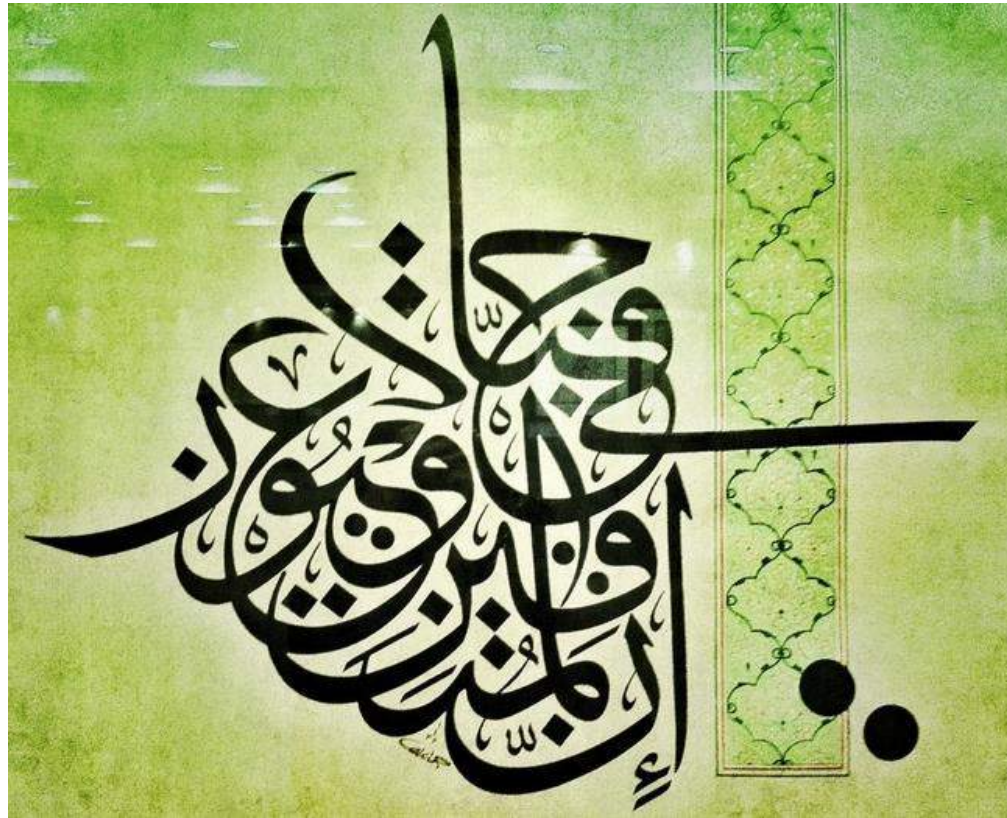 إِنَّ المُتَّقِينَ فِي جَنَّاتٍ وَعُيُونٍ